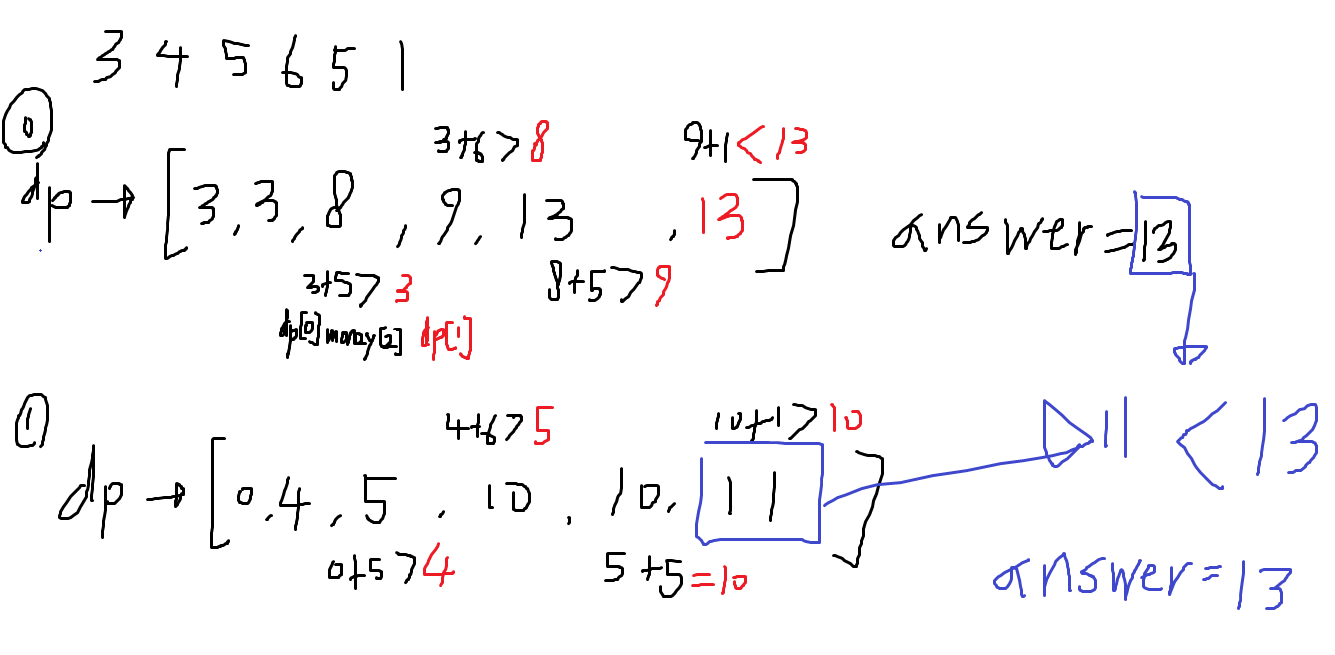 3 4 5 6 5 1
0
3+6 > 8
9+1 < 13
dp → [3, 3, 8, 9, 13, 13]
answer = 13
3+5 > 3
8+5 > 9
dp[0] money[2] dp[1]
1
4+6 > 5
10+1 > 10
11 < 13
dp → [0, 4, 5, 10, 10, 11]
0+5 > 4
5+5 = 10
answer = 13